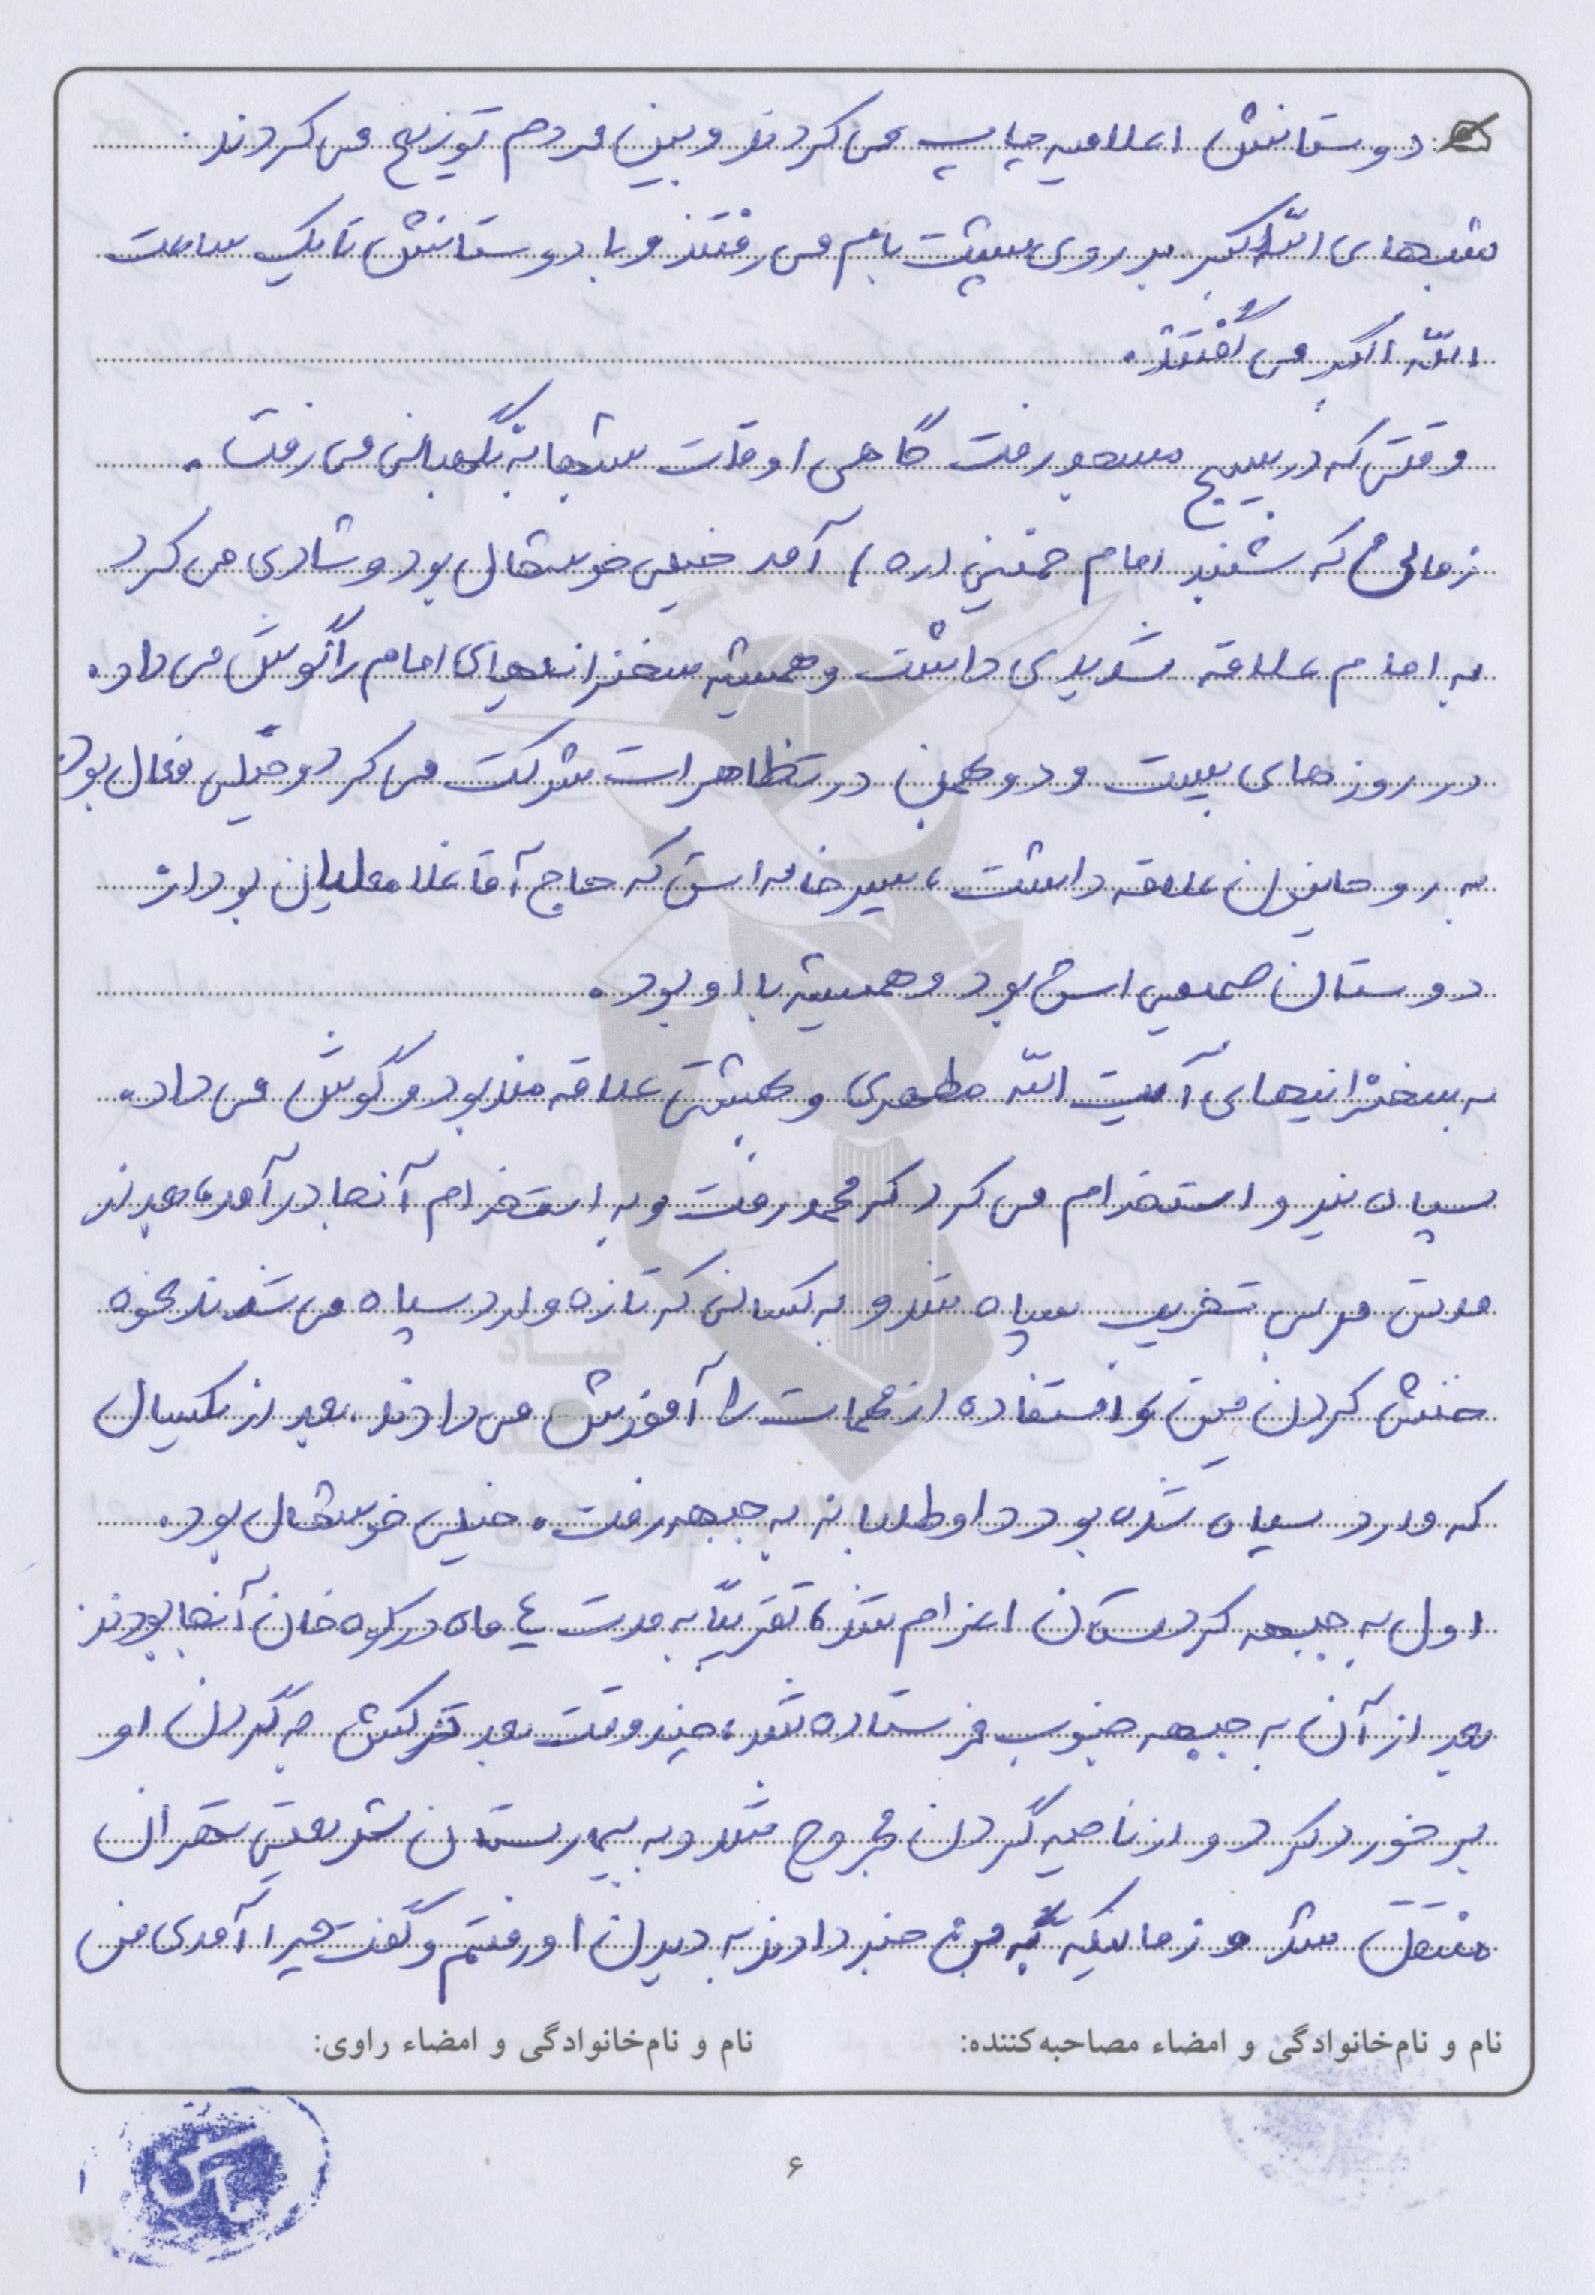 دوستانش اعلامیه چاپ می کردند و بین مردم توزیع می کردند.
شبهای الله اکبر بر روی پشت بام می رفتند و با دوستانش تا یک ساعت
الله اکبر می گفتند.
وقتی که در بسیج مسجد رفت گاهی اوقات شبها به نگهبانی می رفت.
زمانی که شنید امام خمینی (ره) آمد خیلی خوشحال بود و شادی می کرد
به امام علاقه شدیدی داشت و همیشه سخنرانیهای امام را گوش می داد.
در روزهای بیست و دو بهمن در تظاهرات شرکت می کرد و خیلی فعال بود.
به روحانیون علاقه داشت، پسرخاله اش که حاج آقا غلامعلیان بود از
دوستان صمیمی اش بود و همیشه با او بود.
به سخنرانیهای آیت الله مطهری و بهشتی علاقه مند بود و گوش می داد.
سپاه نیرو استخدام می کرد که محمد رفت و به استخدام آنها در آمد، بعد از
مدتی مربی تخریب سپاه شد و به کسانی که تازه وارد سپاه می شدند نحوه
خنثی کردن مین و استفاده از مهمات را آموزش می دادند. بعد از یکسال
که وارد سپاه شده بود داوطلبانه به جبهه رفت. خیلی خوشحال بود.
اول به جبهه کردستان اعزام شد، تقریباً به مدت ٤ ماه در کوه خان آنجا بودند
بعد از آن به جبهه جنوب فرستاده شد، چند وقت بعد ترکش به گردن او
برخورد کرد و از ناحیه گردن مجروح شد و به بیمارستان شریعتی تهران
منتقل شد و زمانیکه به من خبر دادند به دیدن او رفتم و گفت چرا آمدی من
نام و نام‌خانوادگی و امضاء مصاحبه‌کننده: نام و نام‌خانوادگی و امضاء راوی:
۶